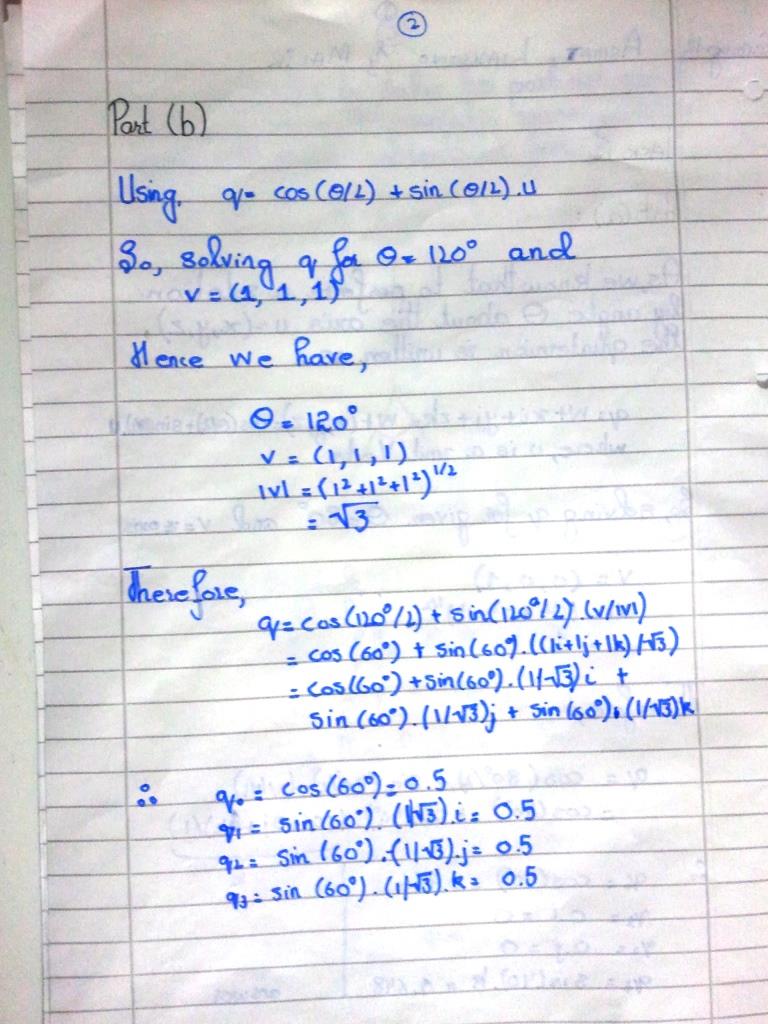 2
Part (b)
Using, q = cos(θ/2) + sin(θ/2).u
So, solving q for θ = 120° and
v = (1, 1, 1)
Hence we have,
θ = 120°
v = (1, 1, 1)
|v| = (1²+1²+1²)^1/2
= √3
Therefore,
q = cos(120°/2) + sin(120°/2).(v/|v|)
= cos(60°) + sin(60°).((1i+1j+1k)/√3)
= cos(60°) + sin(60°).(1/√3)i +
sin(60°).(1/√3)j + sin(60°).(1/√3)k
∴ q₀ = cos(60°) = 0.5
q₁ = sin(60°).(1/√3).i = 0.5
q₂ = sin(60°).(1/√3).j = 0.5
q₃ = sin(60°).(1/√3).k = 0.5